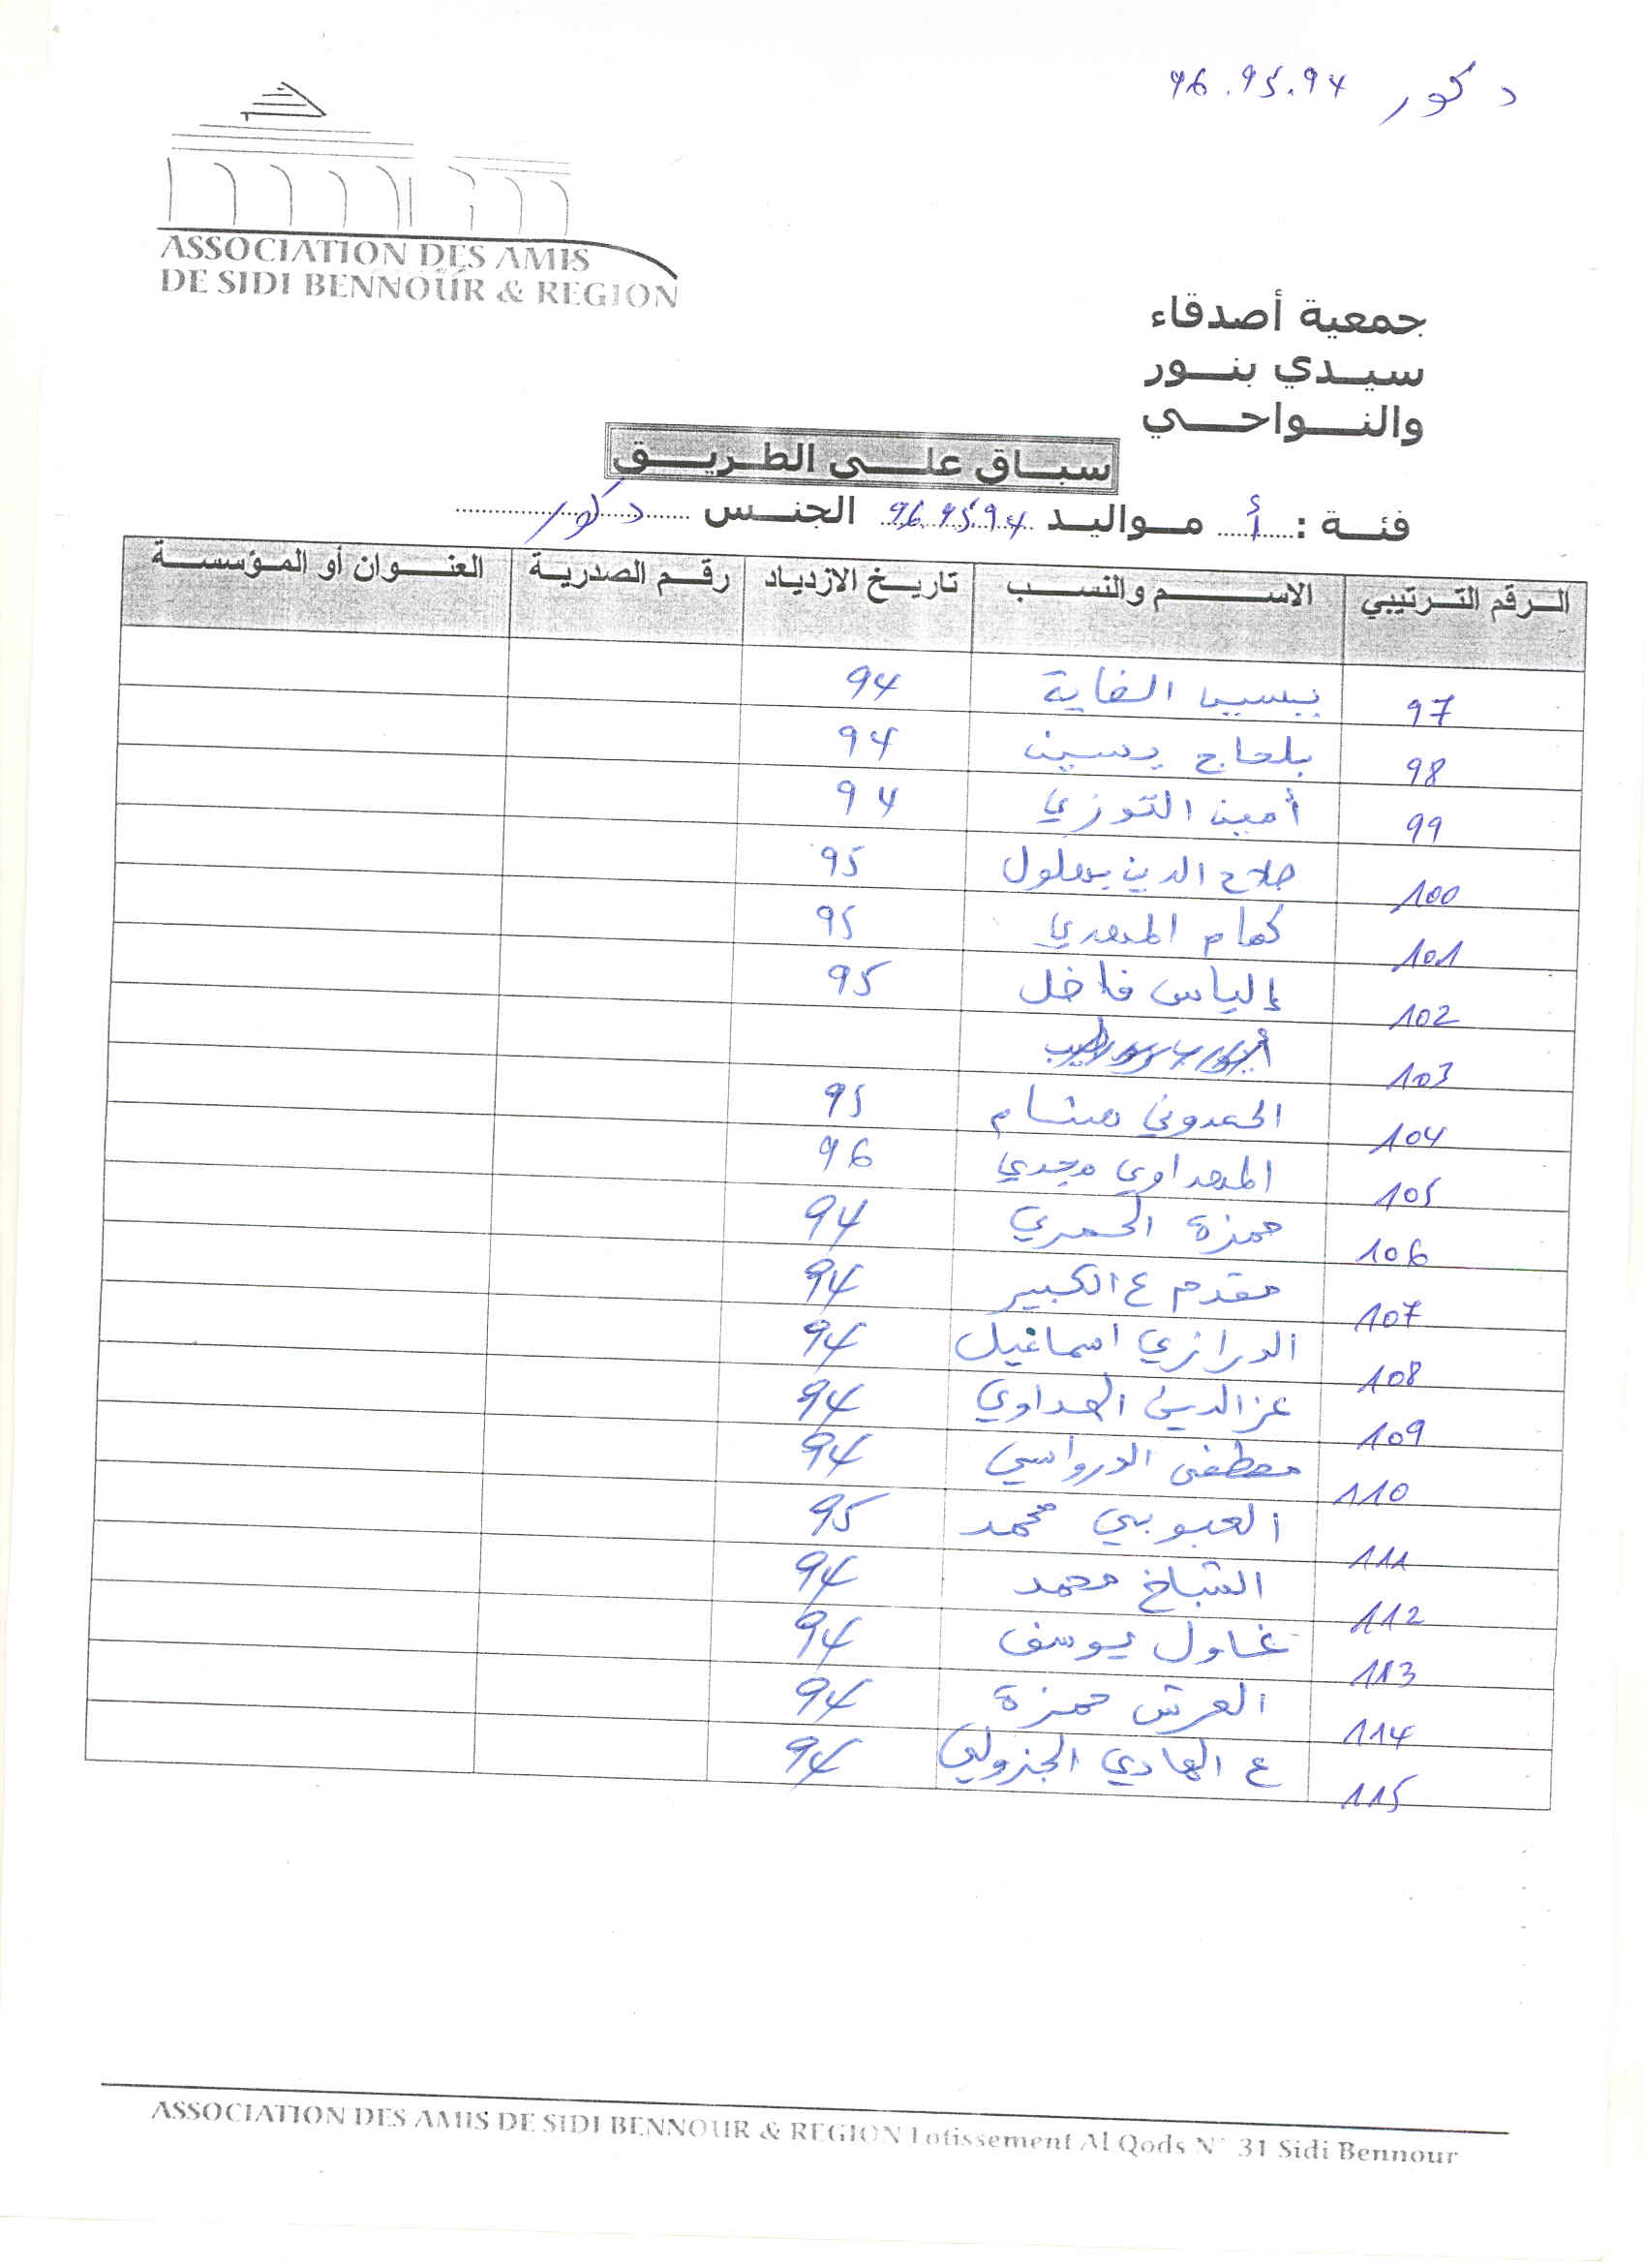 دكور 94 . 95 . 96
ASSOCIATION DES AMIS
DE SIDI BENNOUR & REGION
جمعية أصدقاء
سيدي بنور
والنواحي
سباق على الطريق
فئة : أ مواليد 94 95 96 الجنس دكور
الرقم الترتيبي الاسم والنسب تاريخ الازدياد رقم الصدرية العنوان أو المؤسسة
97 94
98 بلحاج يسين 94
99 أمين التوزي 94
100 صلاح الدين بهلول 95
101 95
102 إلياس فاضل 95
103
104 الحمدوني هشام 95
105 المهداوي مجدي 96
106 حمزة الحمري 94
107 مقدم ع الكبير 94
108 الدرازي اسماعيل 94
109 عز الدين الهداوي 94
110 مصطفى الدرواسي 94
111 العبوبي محمد 95
112 الشباخ محمد 94
113 غاول يوسف 94
114 العرش حمزة 94
115 ع الهادي الجزولي 94
ASSOCIATION DES AMIS DE SIDI BENNOUR & REGION Lotissement Al Qods N° 31 Sidi Bennour